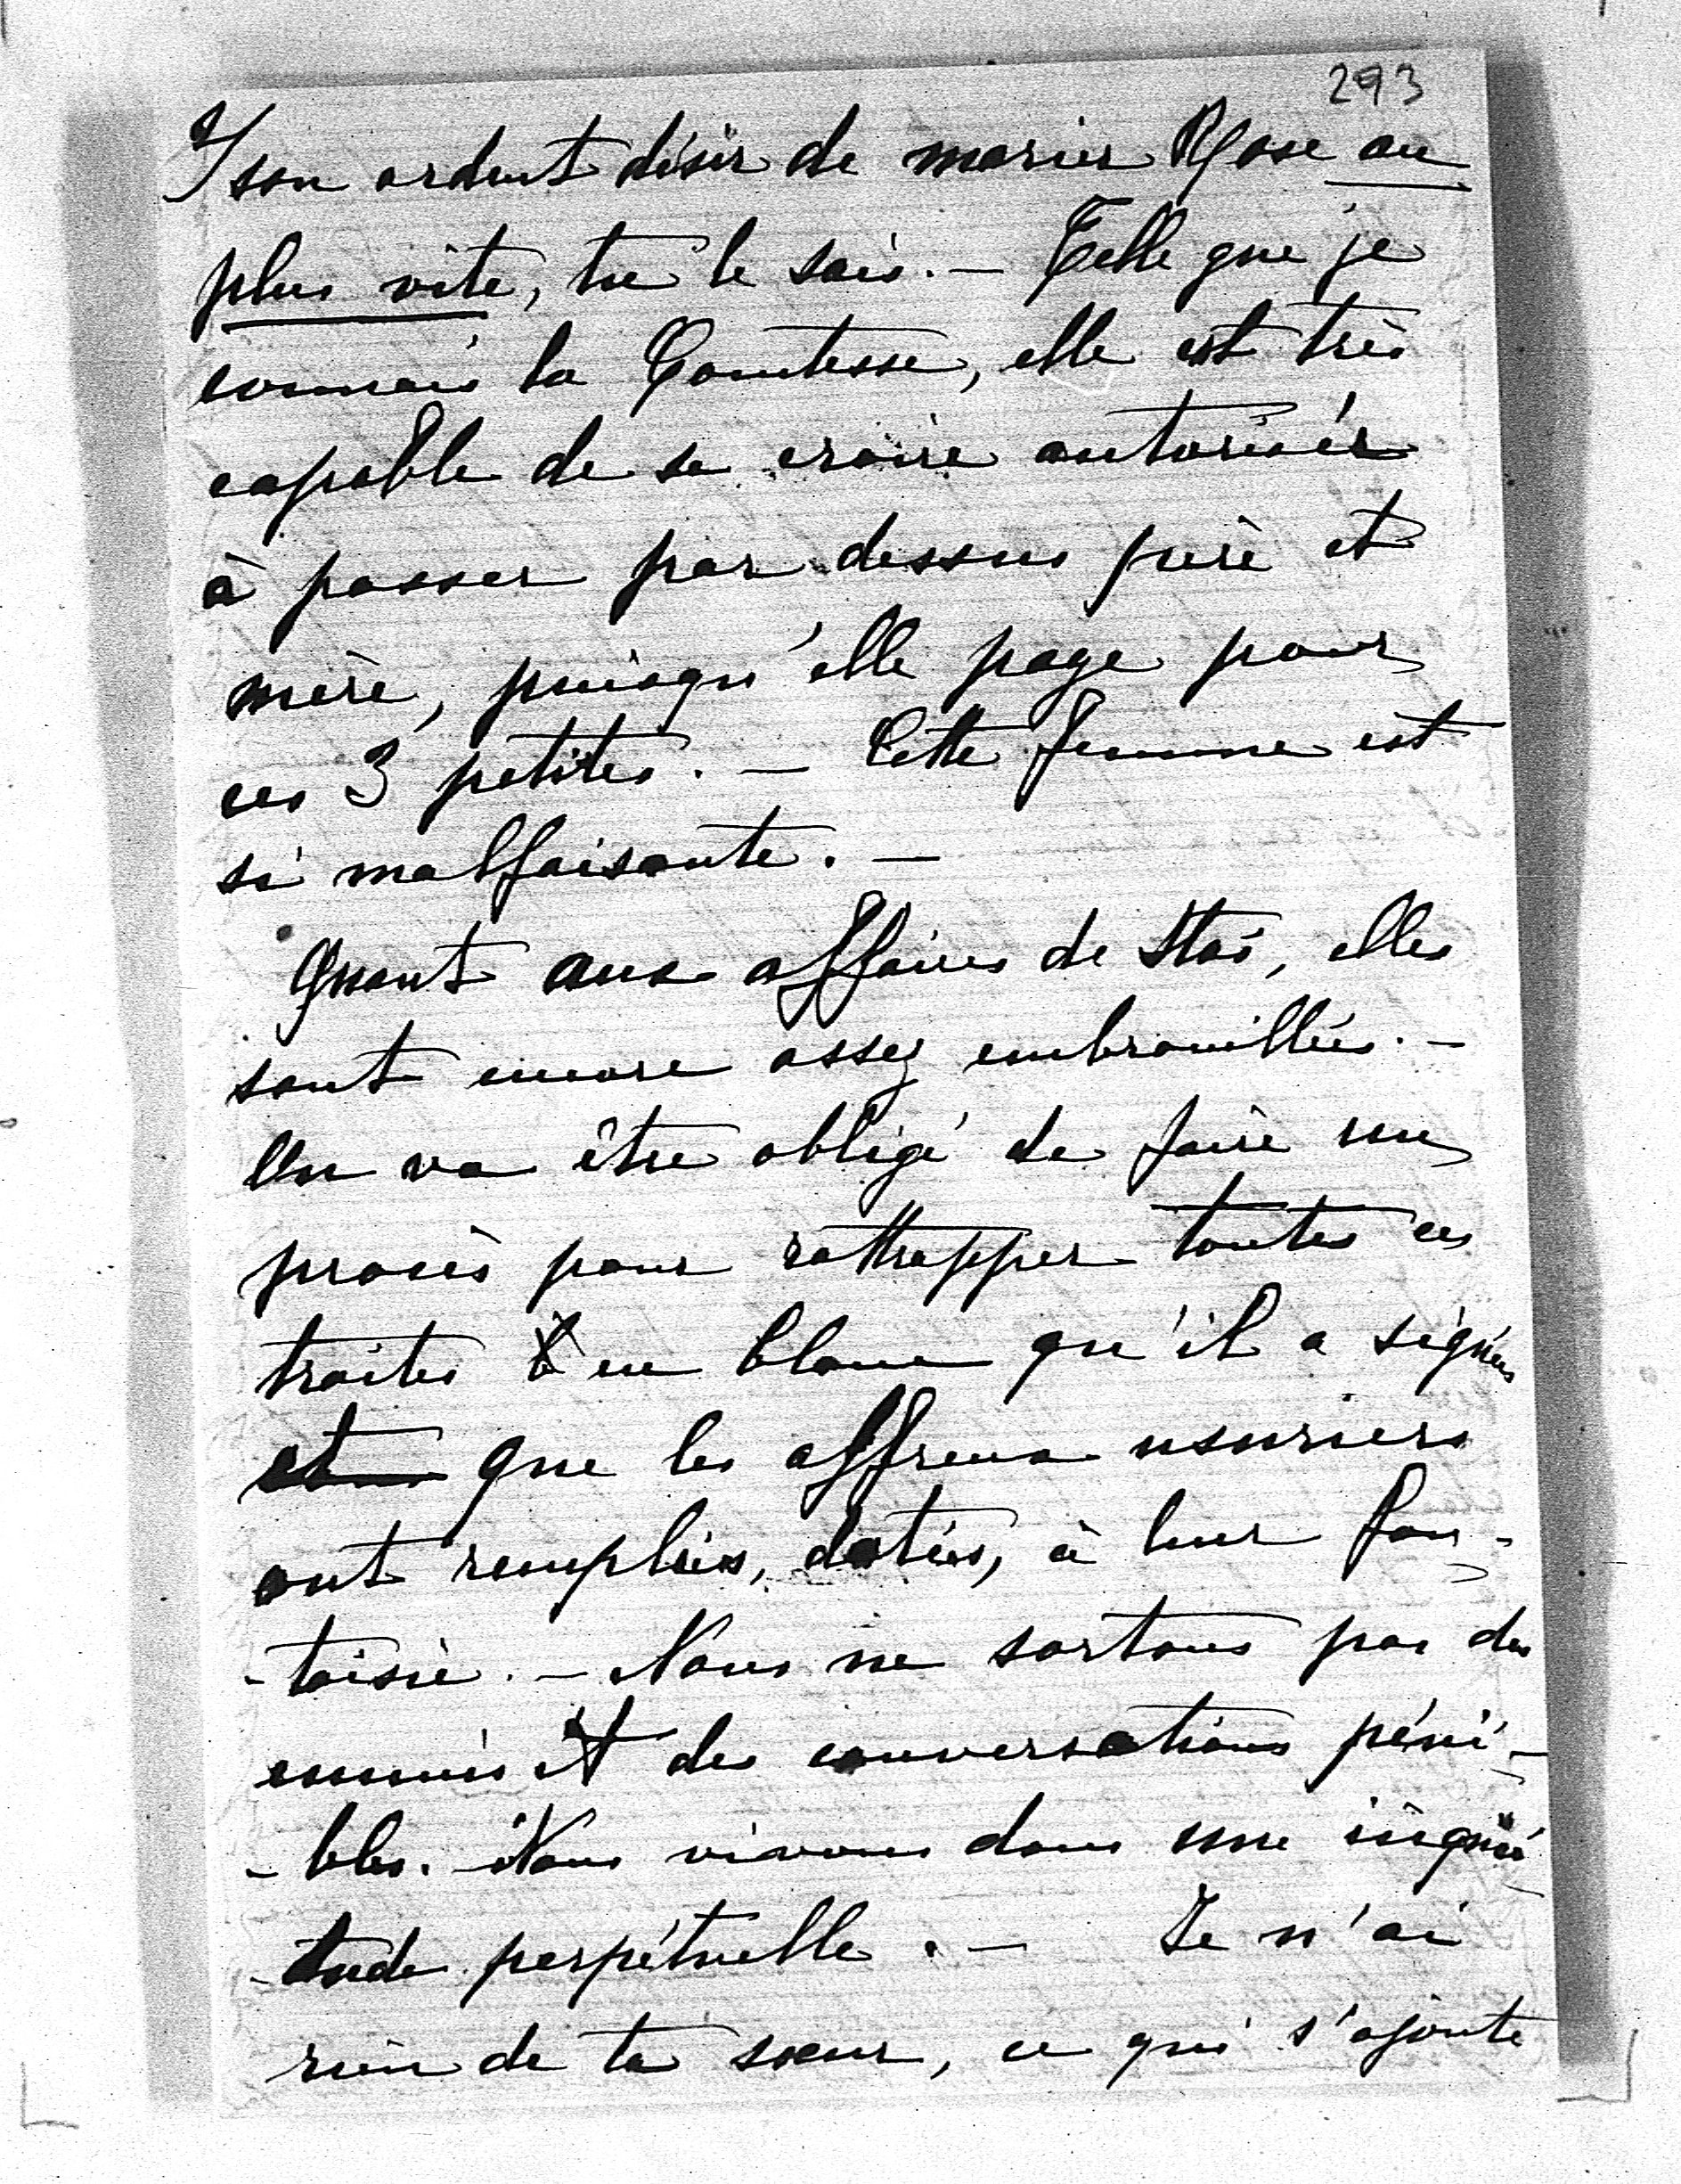 293
son ardent désir de marier Rose au
plus vite, tu le sais. — Telle que je
connais la Comtesse, elle est très
capable de se croire autorisée
à passer par dessus père et
mère, puisqu'elle paye pour
ces 3 petites. — Cette femme est
si malfaisante. —
Quant aux affaires de Stas, elles
sont encore assez embrouillées. —
On va être obligé de faire un
procès pour rattrapper toutes ces
traites en blanc qu'il a signées
et que les affreux usuriers
ont remplies, datées, à leur fan-
-taisie. — Nous ne sortons pas des
ennuis et des conversations péni-
-bles. Nous vivons dans une inquié-
-tude perpétuelle. — Je n'ai
rien de ta sœur, ce qui s'ajoute